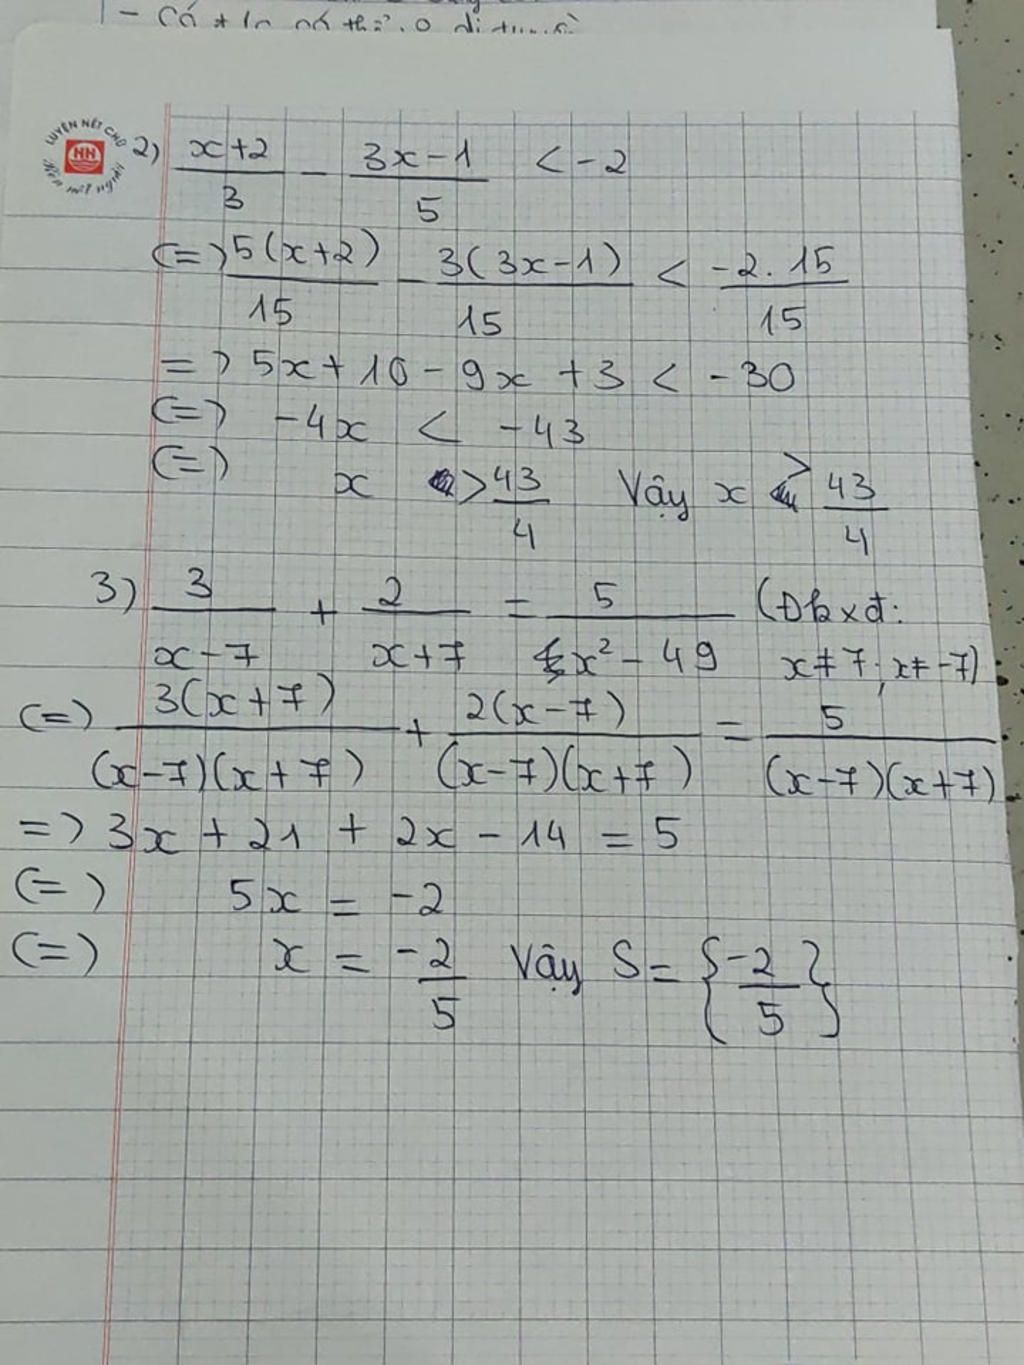 - Có
LUYỆN NÉT CHỮ
HH
Rèn nết người
2) x+2/3 - 3x-1/5 < -2
(=) 5(x+2)/15 - 3(3x-1)/15 < -2.15/15
=) 5x + 10 - 9x + 3 < -30
(=) -4x < -43
(=) x > 43/4 Vậy x > 43/4
3) 3/x-7 + 2/x+7 = 5/x² - 49 (Đkxđ: x≠7; x≠-7)
(=) 3(x+7)/(x-7)(x+7) + 2(x-7)/(x-7)(x+7) = 5/(x-7)(x+7)
=) 3x + 21 + 2x - 14 = 5
(=) 5x = -2
(=) x = -2/5 Vậy S = {-2/5}